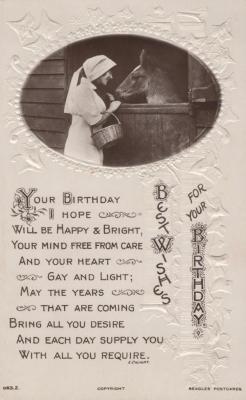 Your Birthday
I hope
Will be Happy & Bright,
Your mind free from care
And your heart
Gay and Light;
May the years
that are coming
Bring all you desire
And each day supply you
With all you require.
Best Wishes
for your Birthday.
COPYRIGHT
BEAGLES' POSTCARDS.